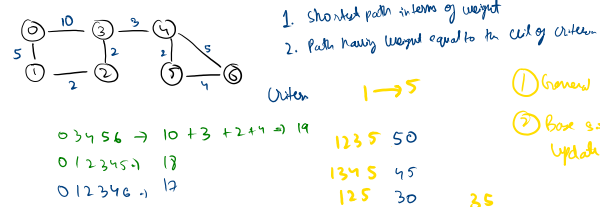 0 10 3 3 4
5 2 2 5
1 2 2 5 4 6
1. Shortest path in terms of weight
2. Path having weight equal to the ceil of criterion
Criterion 1 → 5
① General
② Base
update
0 3 4 5 6 → 10 + 3 + 2 + 4 => 19
0 1 2 3 4 5 → 18
0 1 2 3 4 6 → 17
1 2 3 5 50
1 3 4 5 45
1 2 5 30 35